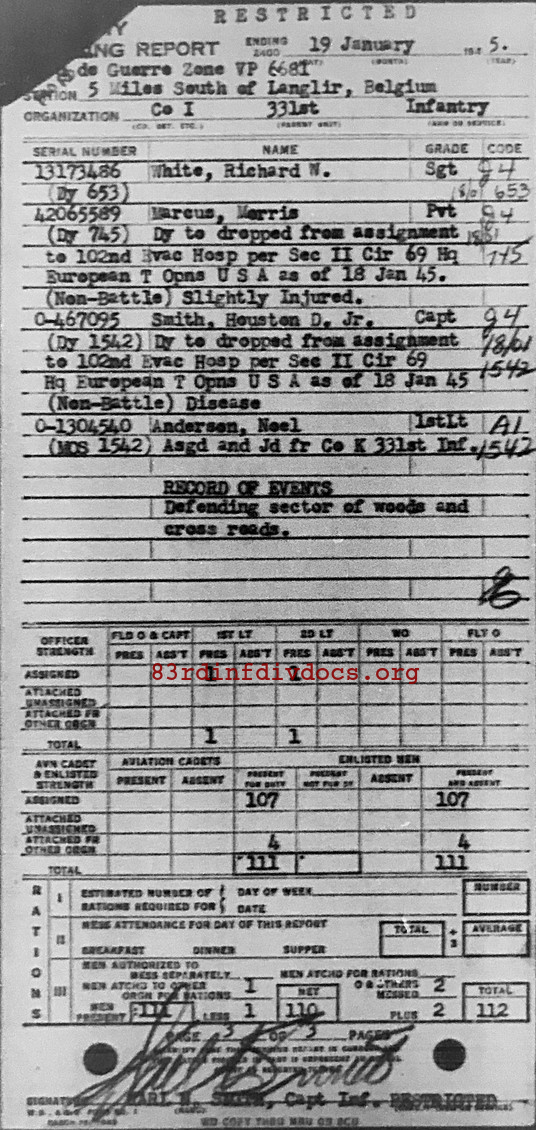 RESTRICTED
ING REPORT ENDING 2400 19 January 194 5.
de Guerre Zone VP 6681
STATION 5 Miles South of Langlir, Belgium
ORGANIZATION Co I 331st Infantry
(CO. DET. ETC.) (PARENT UNIT) (ARM OR SERVICE)
SERIAL NUMBER NAME GRADE CODE
13173486 White, Richard W. Sgt 94
(Dy 653) 18/01 653
42065589 Marcus, Morris Pvt 94
(Dy 745) Dy to dropped from assignment 18/01
to 102nd Evac Hosp per Sec II Cir 69 Hq 745
European T Opns U S A as of 18 Jan 45.
(Non-Battle) Slightly Injured.
O-467095 Smith, Houston D. Jr. Capt 94
(Dy 1542) Dy to dropped from assignment 18/01
to 102nd Evac Hosp per Sec II Cir 69 1542
Hq European T Opns U S A as of 18 Jan 45
(Non-Battle) Disease
O-1304540 Anderson, Noel 1stLt A1
(MOS 1542) Asgd and Jd fr Co K 331st Inf. 1542
RECORD OF EVENTS
Defending sector of woods and
cross roads.
OFFICER STRENGTH FLD O & CAPT 1ST LT 2D LT WO FLT O
PRES ABS'T PRES ABS'T PRES ABS'T PRES ABS'T PRES ABS'T
ASSIGNED 1 1
83rdinfdivdocs.org
ATTACHED UNASSIGNED
ATTACHED FR OTHER ORGN
TOTAL 1 1
AVN CADET & ENLISTED STRENGTH AVIATION CADETS ENLISTED MEN
PRESENT ABSENT PRESENT FOR DUTY PRESENT NOT FOR DY ABSENT PRESENT AND ABSENT
ASSIGNED 107 107
ATTACHED UNASSIGNED
ATTACHED FR OTHER ORGN 4 4
TOTAL 111 111
RATIONS
I ESTIMATED NUMBER OF RATIONS REQUIRED FOR DAY OF WEEK DATE NUMBER
II MESS ATTENDANCE FOR DAY OF THIS REPORT TOTAL ÷ 3 AVERAGE
BREAKFAST DINNER SUPPER
III MEN AUTHORIZED TO MESS SEPARATELY MEN ATCHD FOR RATIONS
MEN ATCHD TO OTHER ORGN FOR RATIONS 1 NET O & OTHERS MESSED 2 TOTAL
MEN PRESENT 111 LESS 1 110 PLUS 2 112
PAGE 3 OF 3 PAGES
SIGNATURE KARL N. SMITH, Capt Inf. RESTRICTED